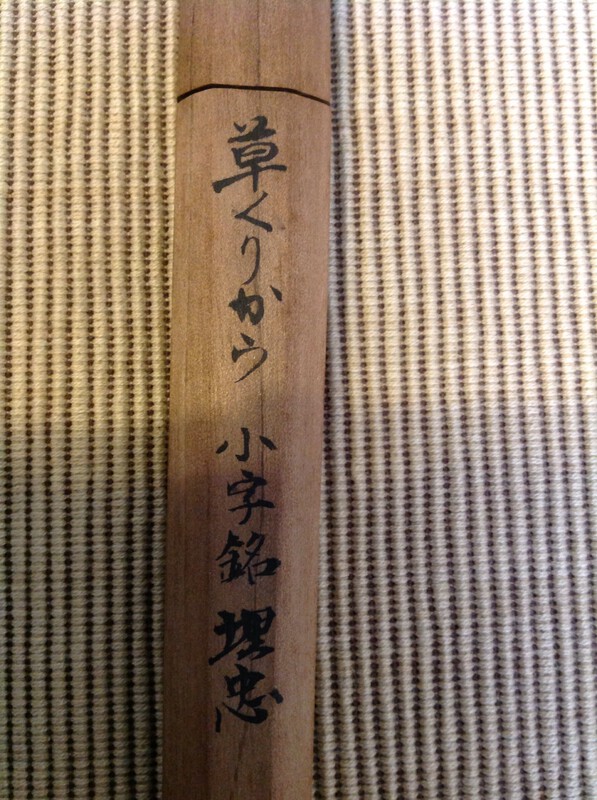 草くりかう　小字銘　埋忠